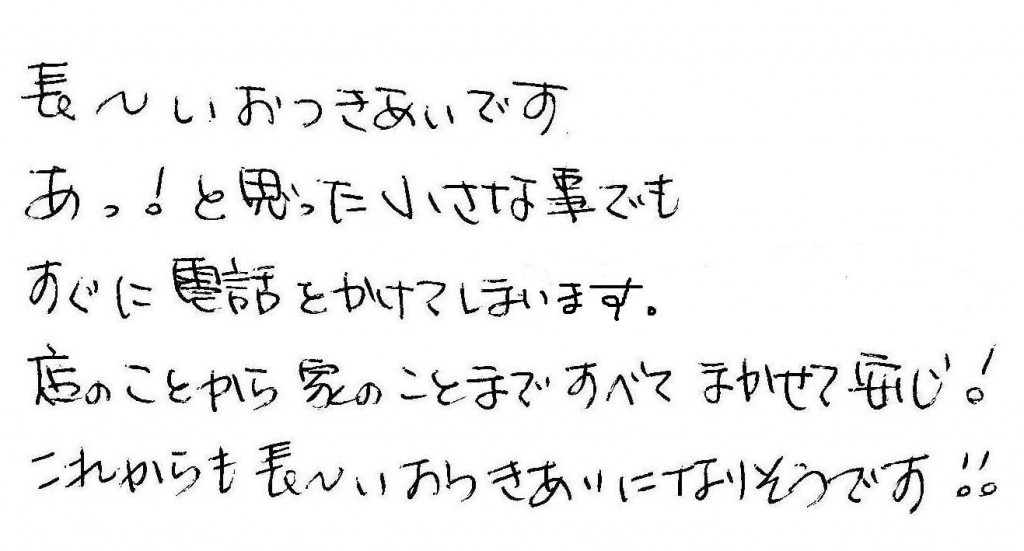 長〜いおつきあいです
あっ！と思った小さな事でも
すぐに電話をかけてしまいます。
店のことから家のことまですべてまかせて安心！
これからも長〜いおつきあいになりそうです！！